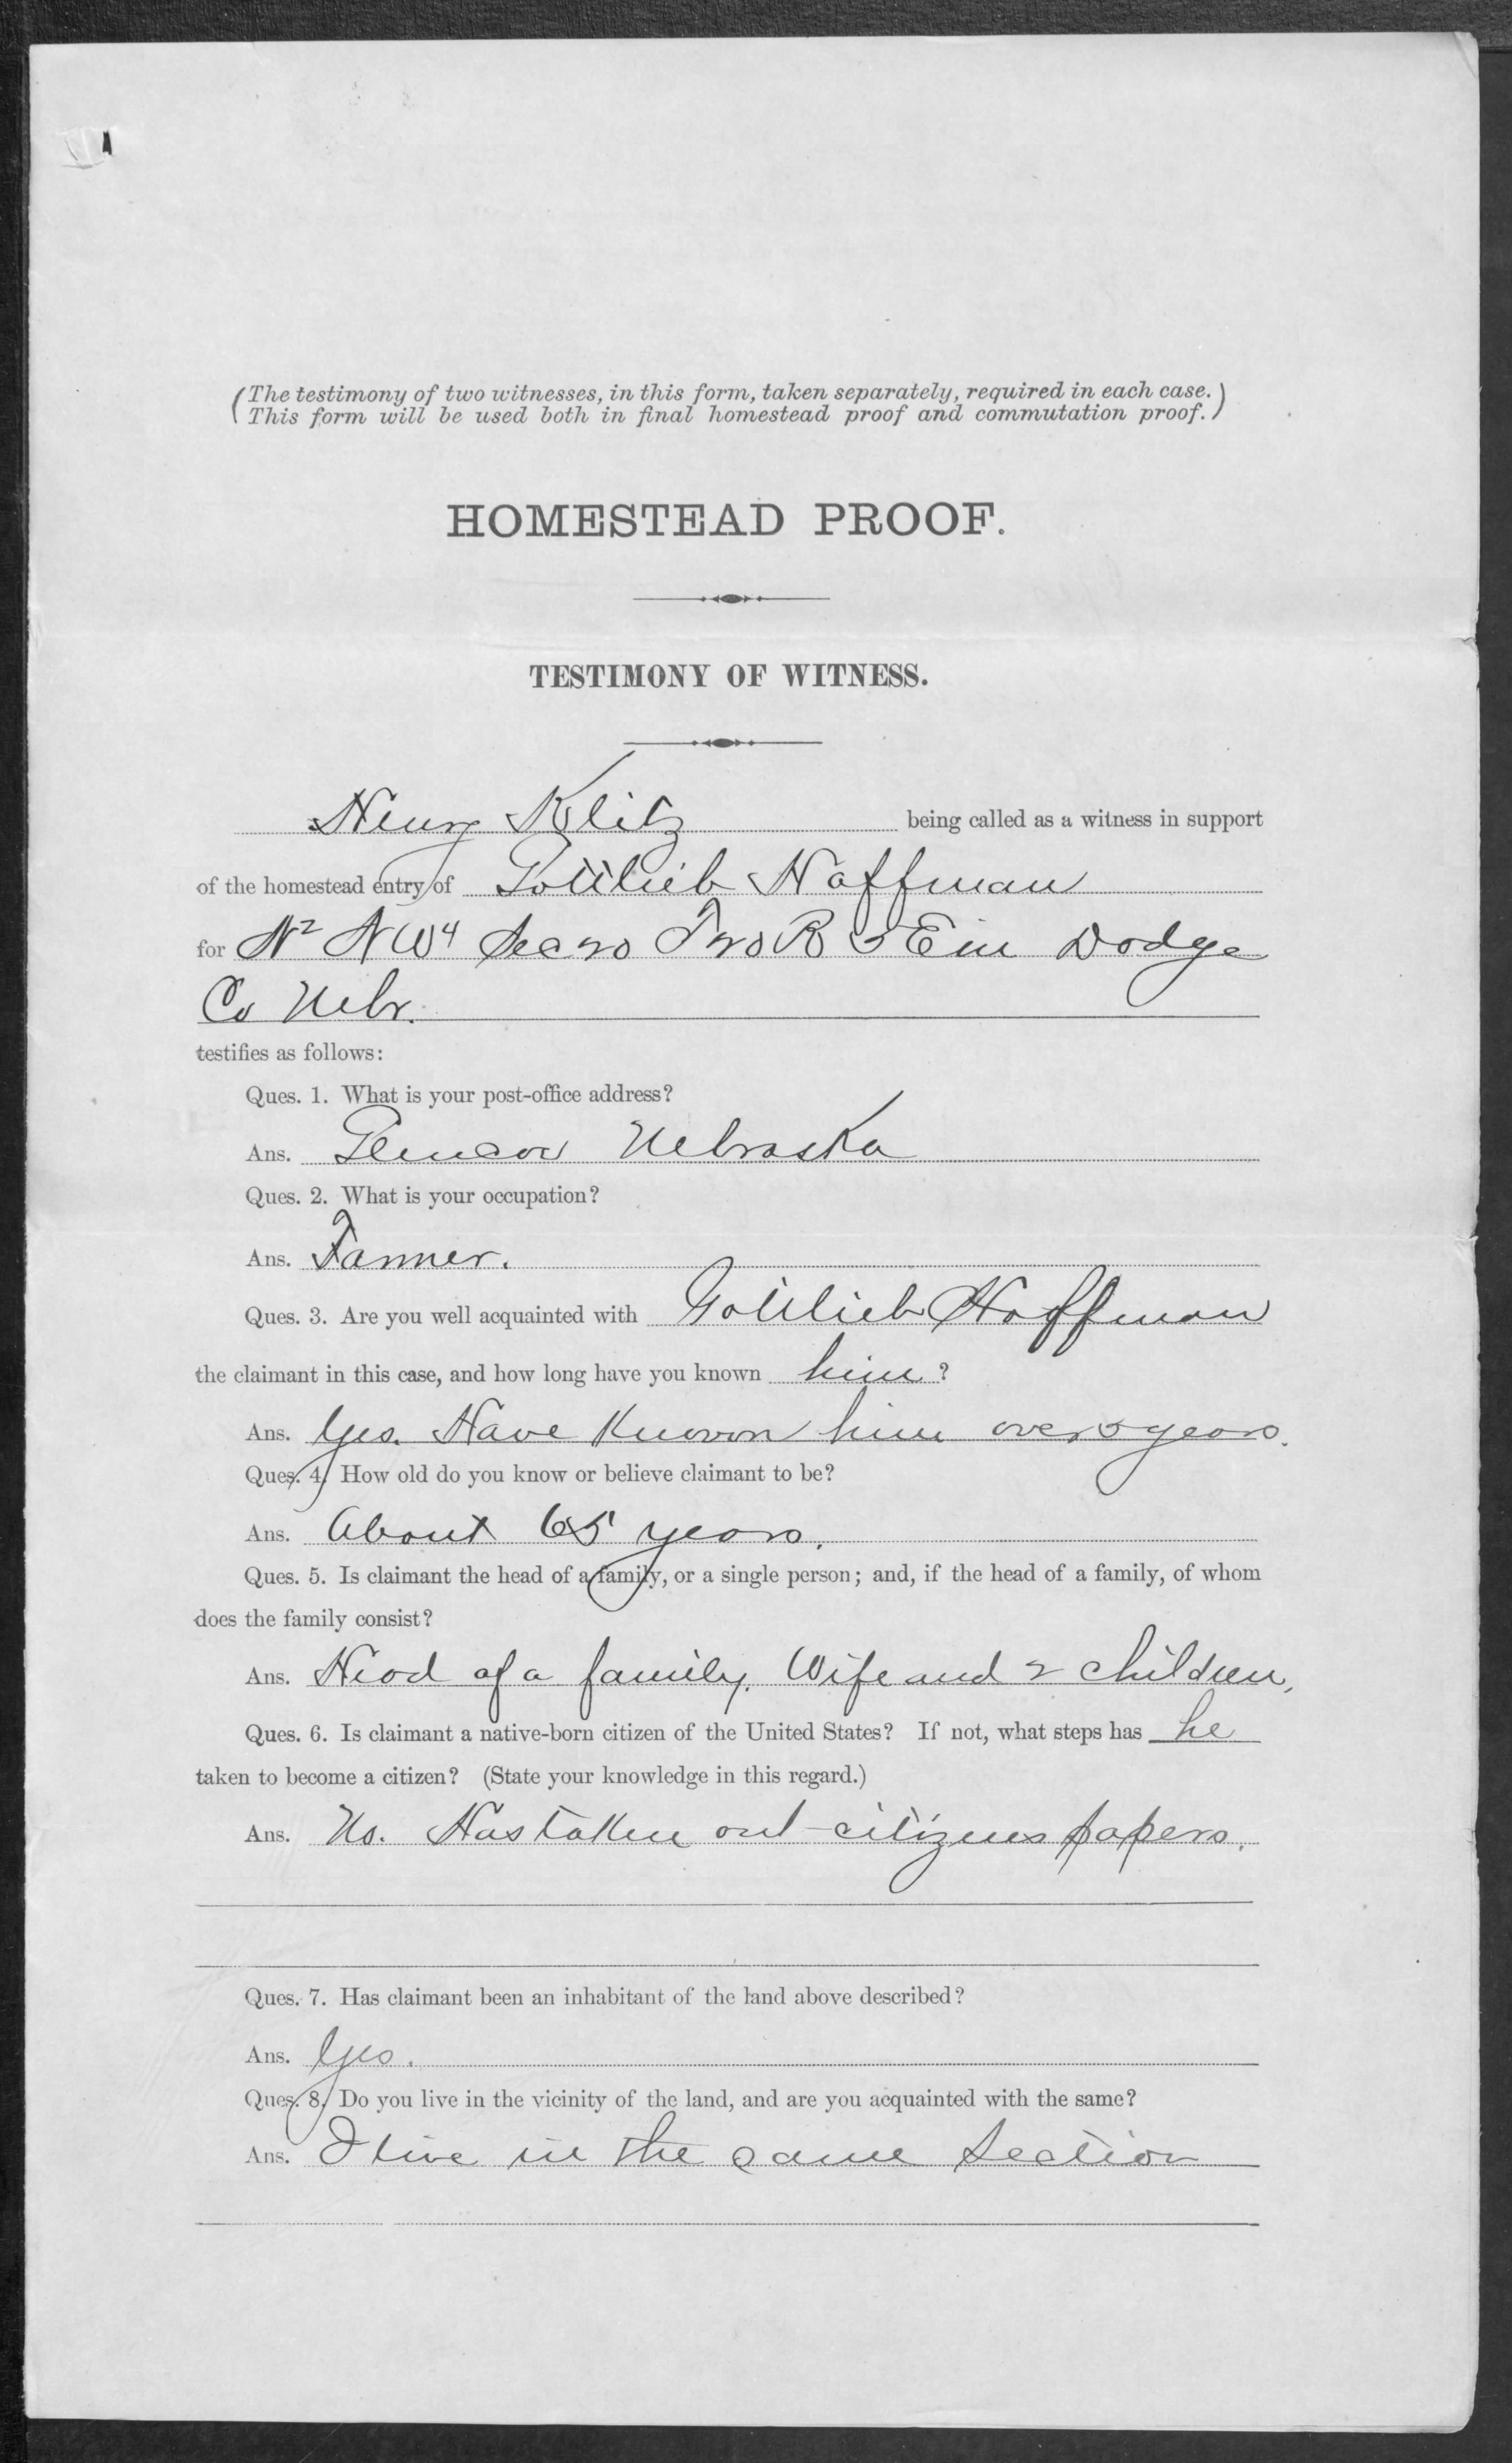 (The testimony of two witnesses, in this form, taken separately, required in each case.)
(This form will be used both in final homestead proof and commutation proof.)
HOMESTEAD PROOF.
TESTIMONY OF WITNESS.
Henry Klitz being called as a witness in support
of the homestead entry of Gottlieb Hoffman
for N2 NW4 Sec 20 T 20 R 5 E in Dodge
Co Nebr.
testifies as follows:
Ques. 1. What is your post-office address?
Ans. Glencoe Nebraska
Ques. 2. What is your occupation?
Ans. Farmer.
Ques. 3. Are you well acquainted with Gottlieb Hoffman
the claimant in this case, and how long have you known him?
Ans. Yes. Have Known him over 5 years.
Ques. 4. How old do you know or believe claimant to be?
Ans. About 65 years.
Ques. 5. Is claimant the head of a family, or a single person; and, if the head of a family, of whom
does the family consist?
Ans. Head of a family. Wife and 2 children,
Ques. 6. Is claimant a native-born citizen of the United States? If not, what steps has he
taken to become a citizen? (State your knowledge in this regard.)
Ans. No. Has taken out citizens papers.
Ques. 7. Has claimant been an inhabitant of the land above described?
Ans. Yes.
Ques. 8. Do you live in the vicinity of the land, and are you acquainted with the same?
Ans. I live in the same Section